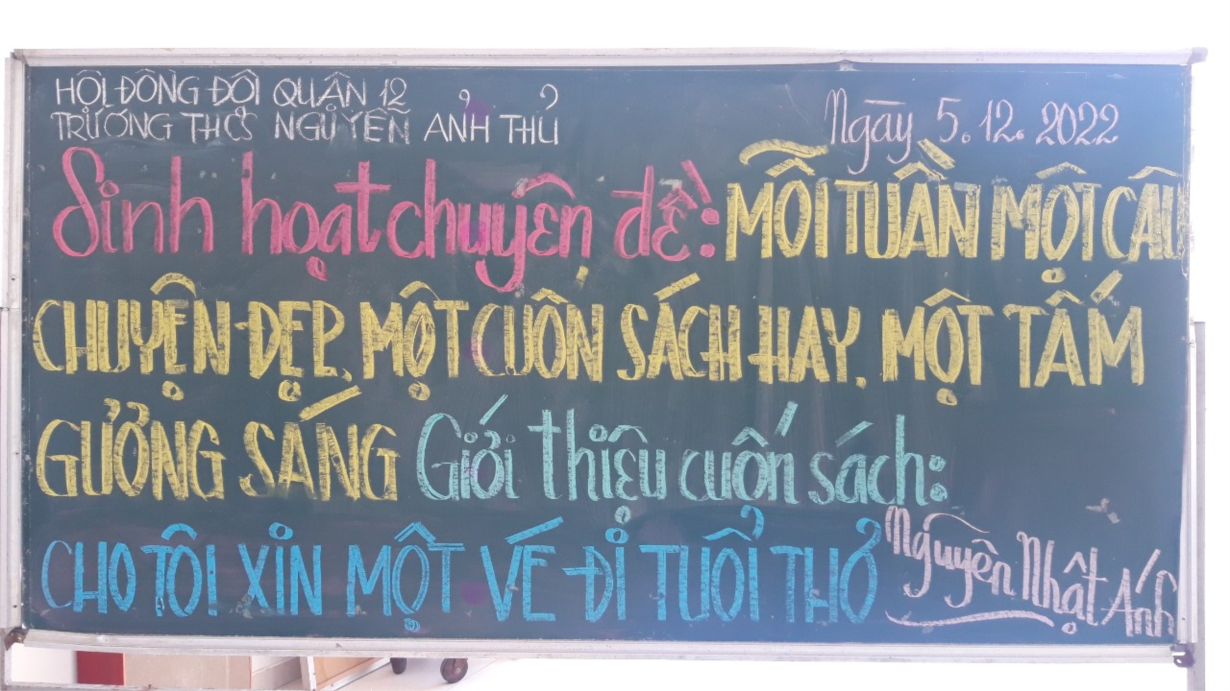 HỘI ĐỒNG ĐỘI QUẬN 12
TRƯỜNG THCS NGUYỄN ẢNH THỦ
Ngày 5.12.2022
Sinh hoạt chuyên đề: MỖI TUẦN MỘT CÂU
CHUYỆN ĐẸP, MỘT CUỐN SÁCH HAY, MỘT TẤM
GƯƠNG SÁNG Giới thiệu cuốn sách:
CHO TÔI XIN MỘT VÉ ĐI TUỔI THƠ Nguyễn Nhật Ánh